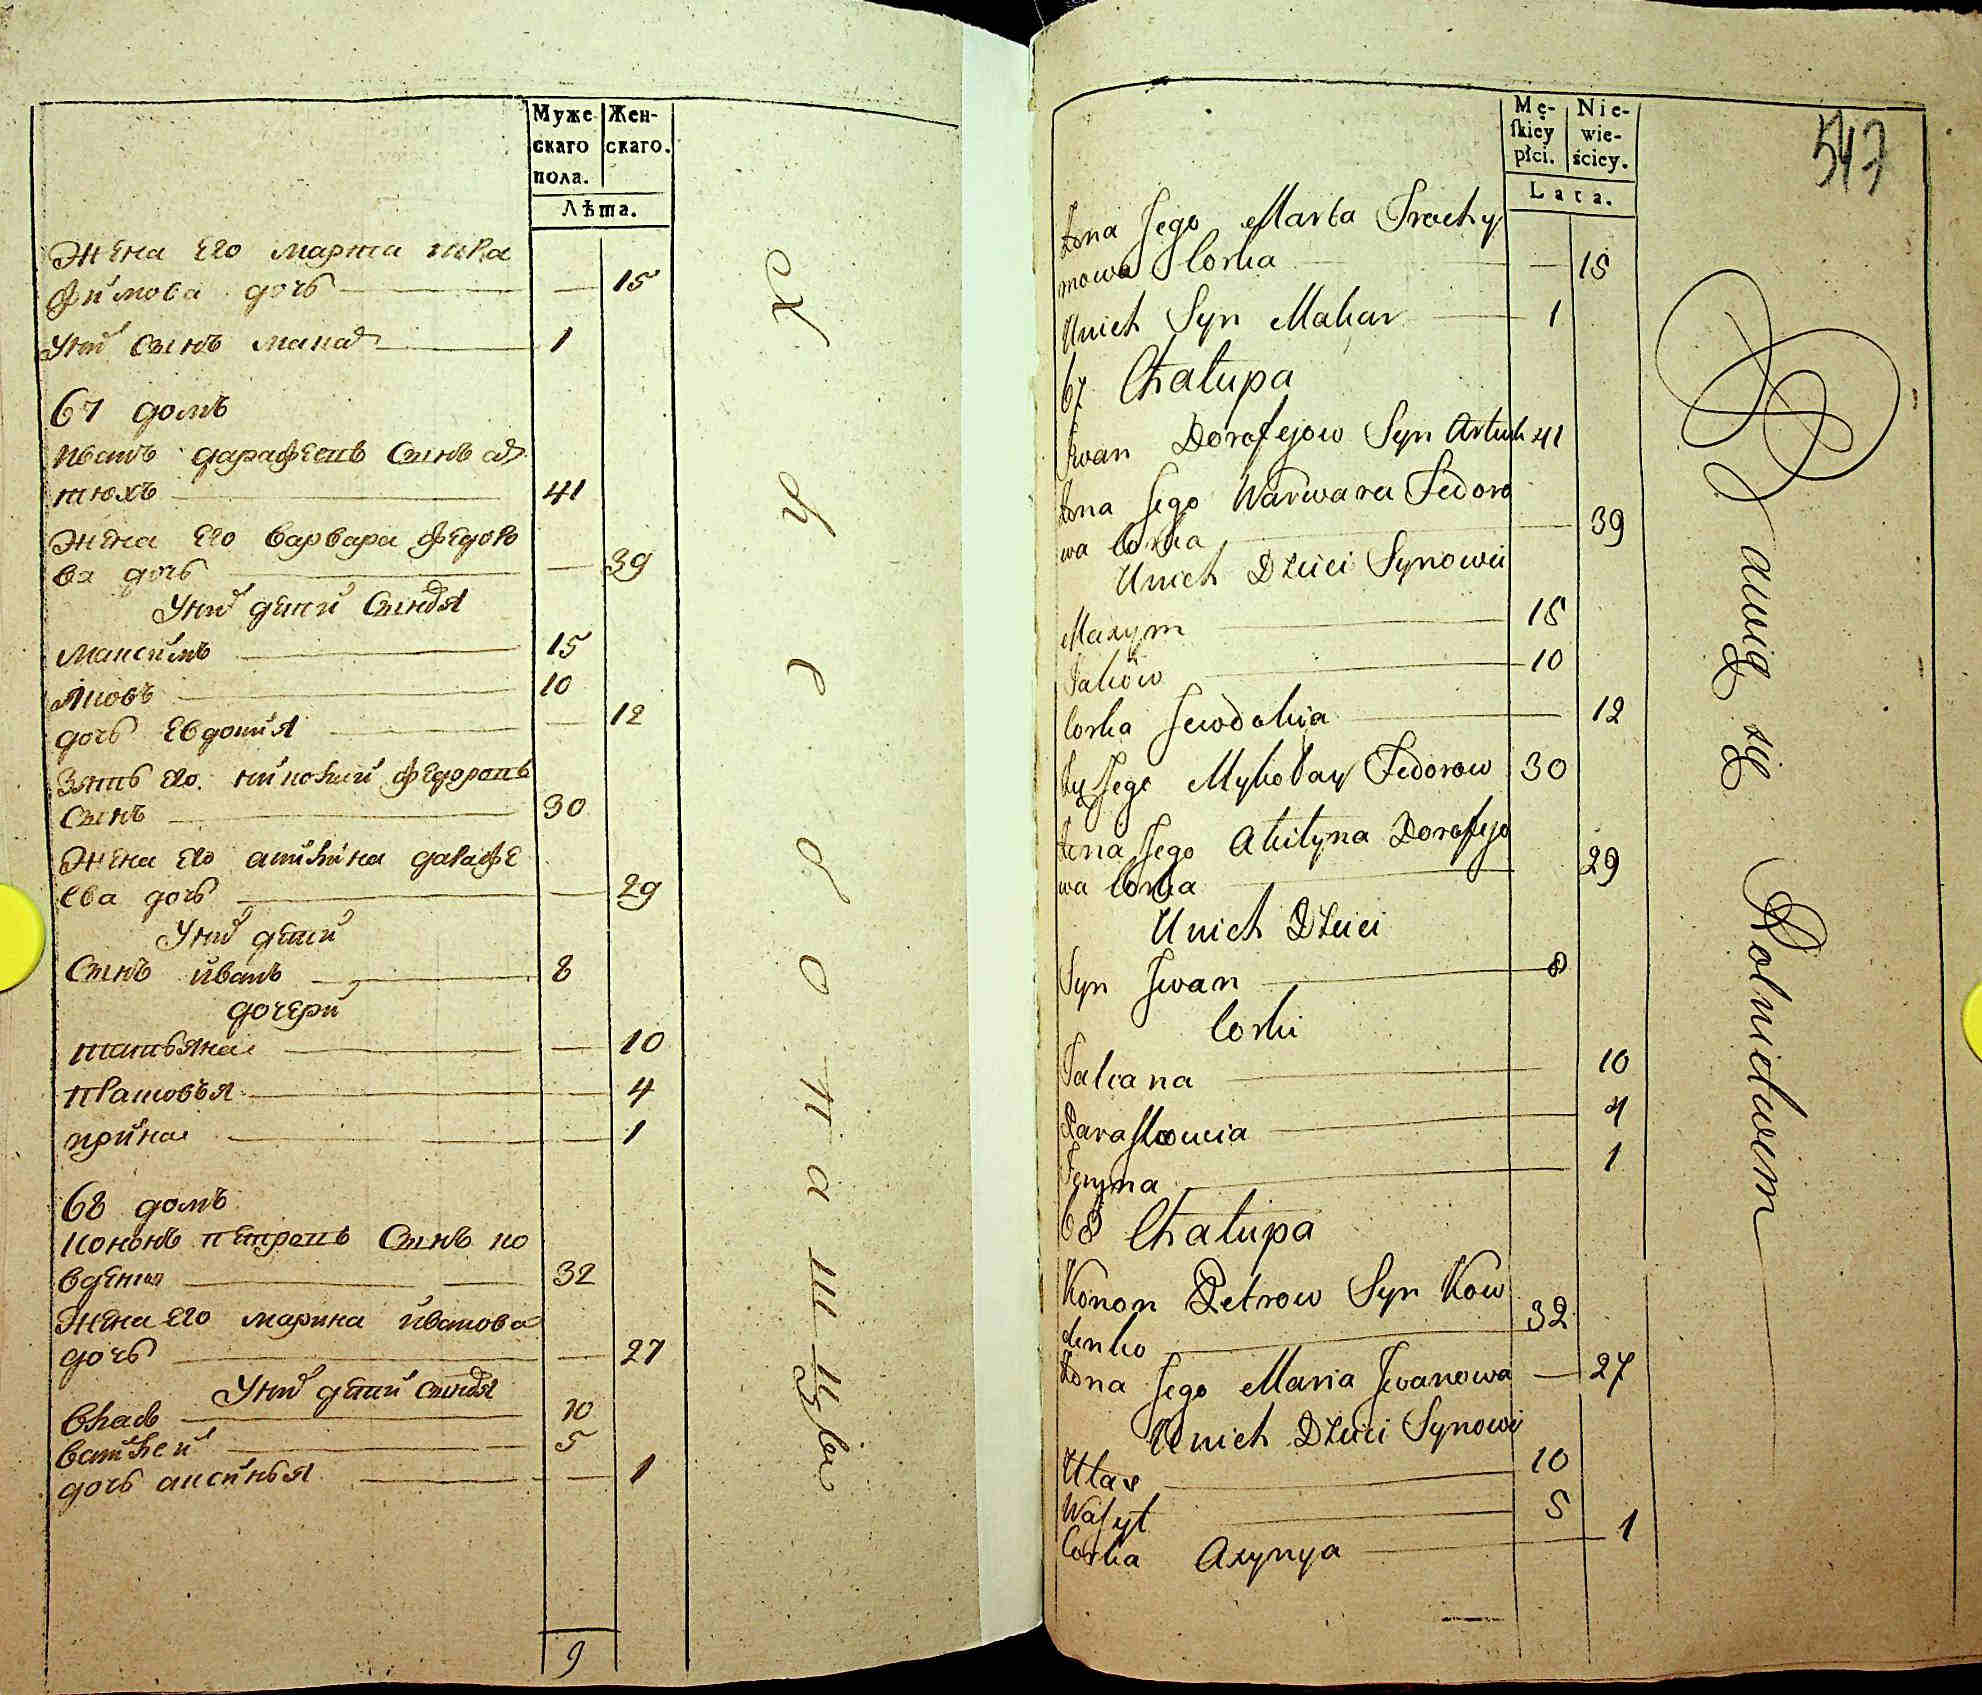 Муже скаго пола.
Жен- скаго.
Лѣта.
Жена его марта
фимова дочь — 15
Уних сынъ макар 1
67 домъ
иванъ дарафеевъ Сынъ ар
тюхъ 41
Жена его варвара федоро
ва дочь — 39
Уних дети Сыновя
Максимъ 15
Яковъ 10
дочь Евдокия — 12
Зять его николай федоровъ
Сынъ 30
Жена его дарафе
ева дочь — 29
Уних дети
Сынъ иванъ 8
дочери
татьяна — 10
— 4
ирина — 1
68 домъ
кононъ петровъ Сынъ ко
вденко 32
Жена его марина иванова
дочь — 27
Уних дети сыновя
влас 10
василей 5
дочь аксинья — 1
9
хлебопашцы
Mę- ſkiey płci.
Nie- wie- ściey.
Lata.
547
Żona Jego Marta Trochy
mowa Corka — 15
Unich Syn Makar 1
67 Chałupa
Jwan Dorofejow Syn Artiuh 41
Żona Jego Warwara Fedoro
wa Corka — 39
Unich Dzieci Synowie
Maxym 15
Jakow 10
Corka Jewdokia — 12
Zięć Jego Mykołay Fedorow 30
Żona Jego Akilyna Dorofejo
wa Corka 29
Unich Dzieci
Syn Jwan 8
Corki
Tatiana 10
Paraskowia 4
1
68 Chałupa
Konon Petrow Syn Kow
denko 32
Żona Jego Maria Jwanowa — 27
Unich Dzieci Synowie
Ułas 10
Wasyl 5
Corka Axynya 1
Bawią się Rolnictwem